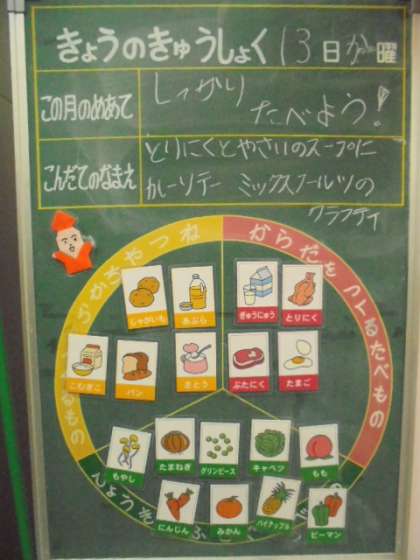 きょうのきゅうしょく 13日か曜
この月のめあて
しっかり
たべよう!
こんだてのなまえ
とりにくとやさいのスープに
ガーリックトースト ミックスフルーツの
クラフティ
からだをつくるたべもの
じゃがいも
あぶら
ぎゅうにゅう
とりにく
こむぎこ
パン
さとう
ぶたにく
たまご
もやし
たまねぎ
グリンピース
キャベツ
もも
にんじん
みかん
パイナップル
ピーマン